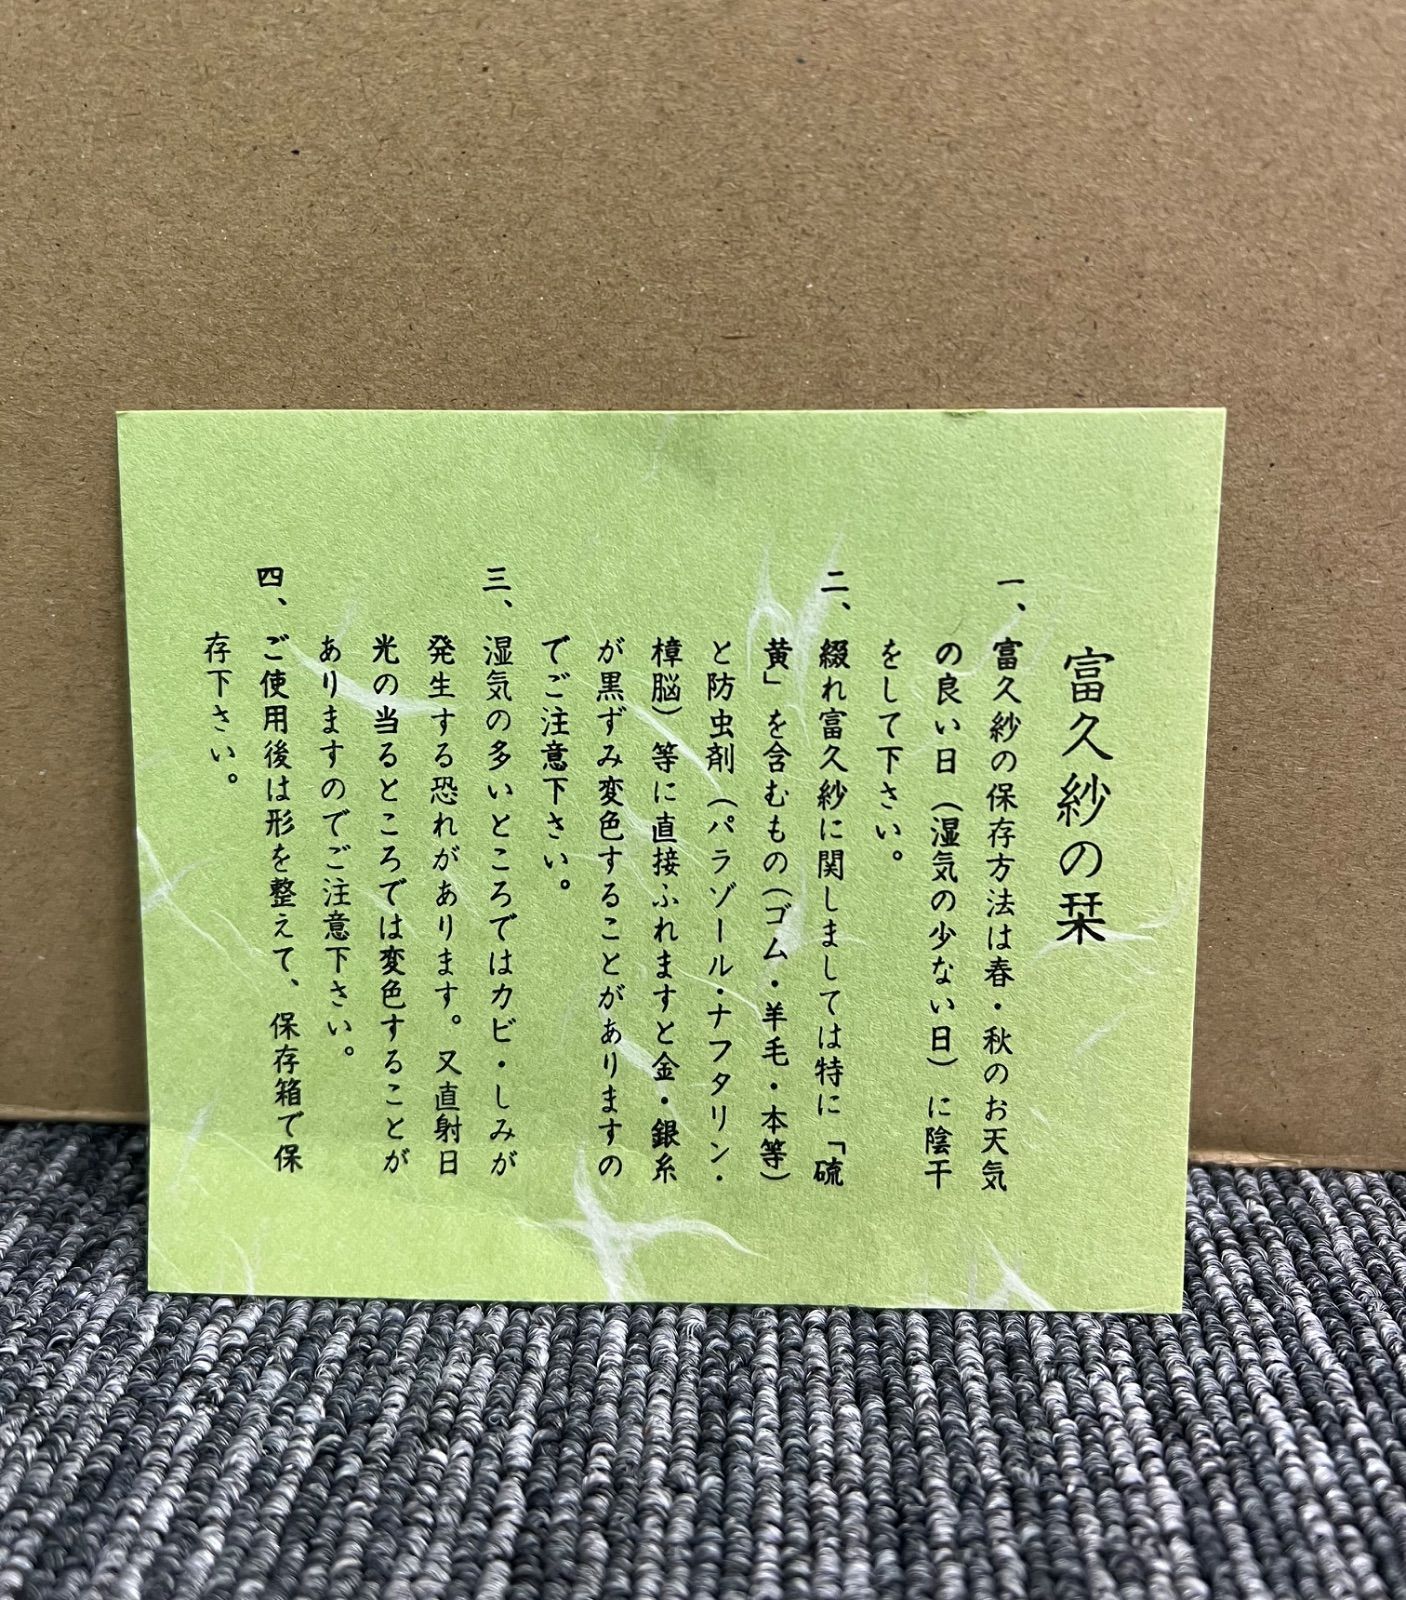 富久紗の栞
一、富久紗の保存方法は春・秋のお天気
の良い日（湿気の少ない日）に陰干
をして下さい。
二、綴れ富久紗に関しましては特に「硫
黄」を含むもの（ゴム・羊毛・本等）
と防虫剤（パラゾール・ナフタリン・
樟脳）等に直接ふれますと金・銀糸
が黒ずみ変色することがありますの
でご注意下さい。
三、湿気の多いところではカビ・しみが
発生する恐れがあります。又直射日
光の当るところでは変色することが
ありますのでご注意下さい。
四、ご使用後は形を整えて、保存箱で保
存下さい。